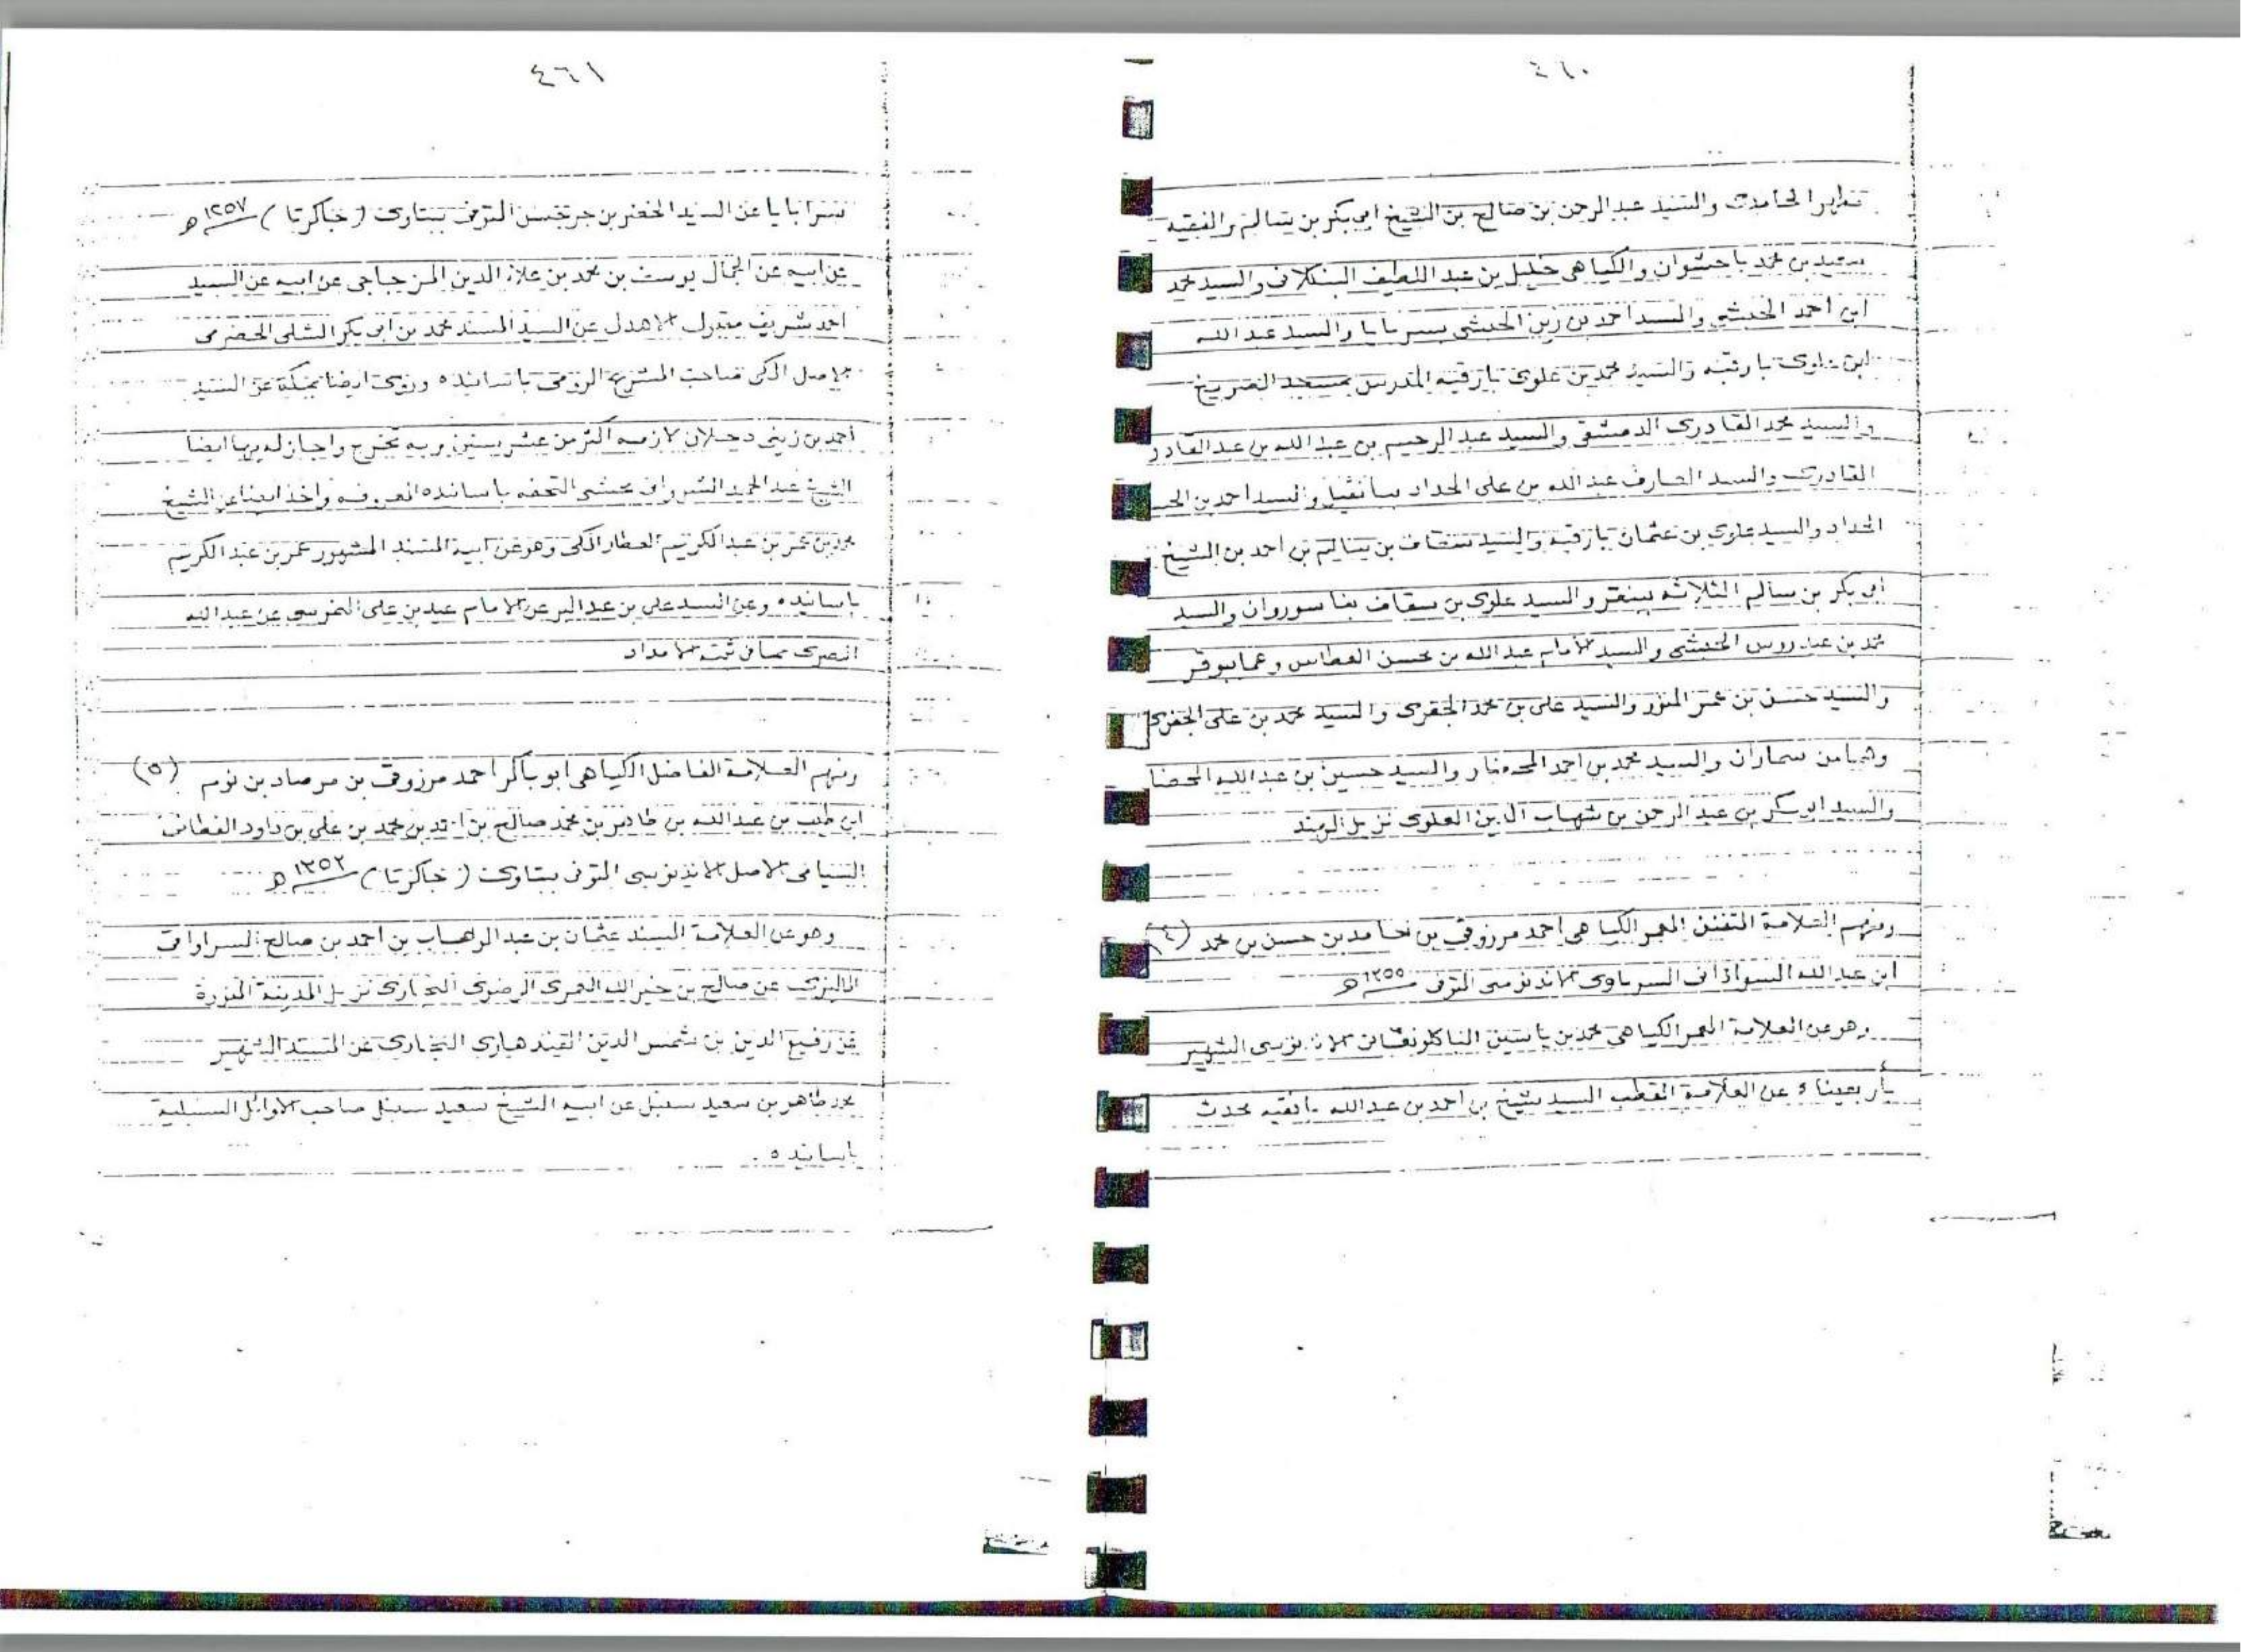 ٤٦٠
الحامدي والسيد عبد الرحمن بن صالح بن الشيخ ابي بكر بن سالم والفقيه
سعيد بن محمد باحشوان والكياهي خليل بن عبد اللطيف البنكلاني والسيد محمد
ابن احمد الحبشي والسيد احمد بن زين الحبشي بسربايا والسيد عبد الله
ابن علوي بارقبه والسيد محمد بن علوي بارقبه المدرس بمسجد
والسيد محمد القادري الدمشقي والسيد عبد الرحيم بن عبد الله بن عبد القادر
القادري والسيد العارف عبد الله بن علي الحداد ببانقيل والسيد احمد بن
الحداد والسيد علوي بن عثمان بارقبه والسيد سقاف بن سالم بن احمد بن الشيخ
أبي بكر بن سالم الثلاثه والسيد علوي بن سقاف بفاسوروان والسيد
محمد بن عيدروس الحبشي والسيد الأمام عبد الله بن محسن العطاس وهما ببوقر
والسيد حسن بن عمر المنور والسيد علي بن محمد الجفري والسيد محمد بن علي الجفري
وهما من سماران والسيد محمد بن احمد المحضار والسيد حسين بن عبد الله
والسيد ابو بكر بن عبد الرحمن بن شهاب الدين العلوي نزيل الهند
ومنهم العلامة المتفنن المعمر الكياهي احمد مرزوقي بن حامد بن حسن بن محمد (٤)
ابن عبد الله السوادائي السرباوي الاندنوسي المتوفى ١٣٥٥ھ
وهو عن العلامة المعمر الكياهي محمد بن ياسين الاندنوسي الشهير
عن العلامة القطب السيد شيخ بن احمد بن عبد الله بافقيه محدث
٤٦١
سرابايا عن السيد الخضر بن المتوفى ببتاوي (جاكرتا) ١٢٥٧ھ
عن ابيه عن الجمال يوسف بن محمد بن علاء الدين المزجاجي عن ابيه عن السيد
احمد شريف مقبول الاهدل عن السيد المسند محمد بن ابي بكر الشلي الحضرمي
الاصل المكي صاحب المشرع الروي باسانيده وروى ايضا بمكة عن السيد
أحمد بن زيني دحلان لازمه اكثر من عشر سنين وبه تخرج واجاز له بها ايضا
الشيخ عبد الحميد الشرواني محشي التحفه باسانيده المعروفه واخذ ايضا عن الشيخ
محمد بن عمر بن عبد الكريم العطار المكي وهو عن ابيه المسند المشهور عمر بن عبد الكريم
باسانيده وعن السيد علي بن عبد البر عن الامام عيد بن علي النمرسي عن عبد الله
البصري بما في ثبت الامداد
ومنهم العلامة الفاضل الكياهي ابو باكر احمد مرزوقي بن مرصاد بن نوم (٥)
ابن بن عبد الله بن بن محمد صالح بن بن محمد بن علي بن داود الفطاني
السيامي الاصل الاندنوسي المتوفى ببتاوي (جاكرتا) ١٣٥٢ھ
وهو عن العلامة المسند عثمان بن عبد الوهاب بن احمد بن صالح السراواقي
الماليزي عن صالح بن خير الله العمري الرضوي البخاري نزيل المدينة المنورة
عن رفيع الدين بن شمس الدين القندهاري البخاري عن المسند الشهير
محمد طاهر بن سعيد سنبل عن ابيه الشيخ سعيد سنبل صاحب الاوائل السنبلية
باسانيده .